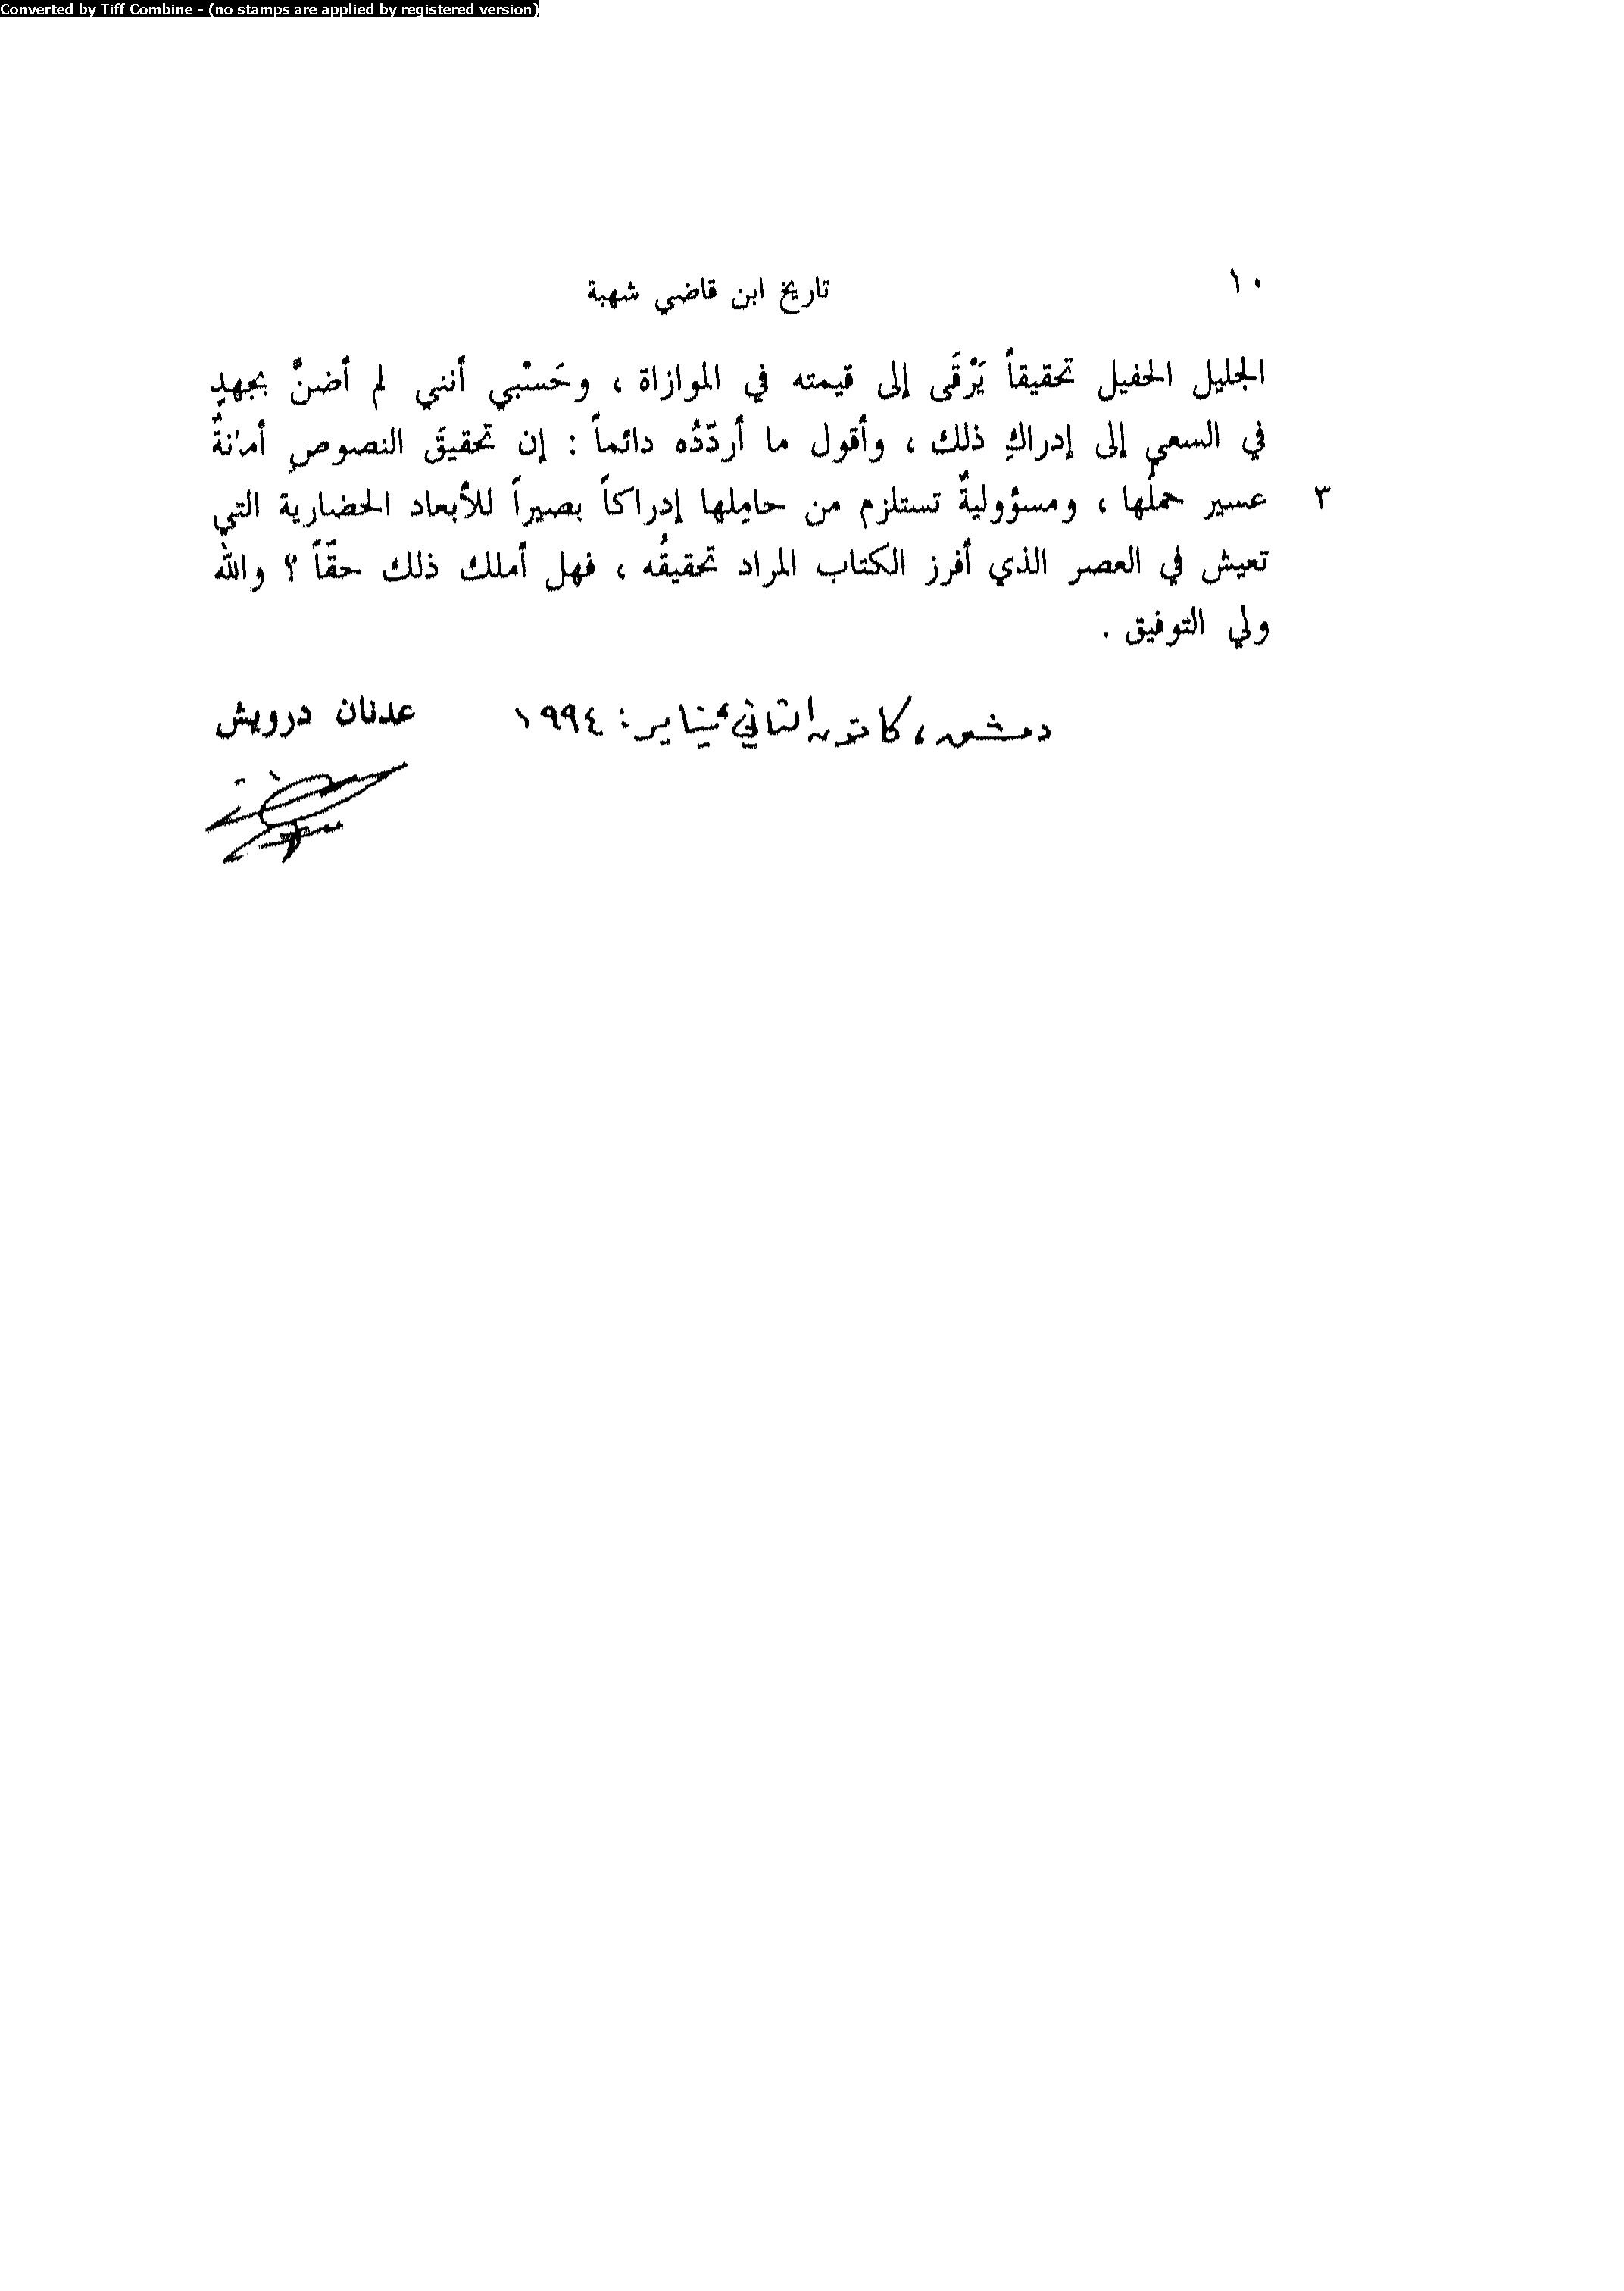 Converted by Tiff Combine - (no stamps are applied by registered version)
١٠
تاريخ ابن قاضي شهبة
الجليل الحفيل تحقيقاً يَرْقَى إلى قيمته في الموازاة ، وحَسْبي أنني لم أضنَّ بجهدٍ
في السعي إلى إدراكِ ذلك ، وأقول ما أردّدُه دائماً : إن تحقيقَ النصوصِ أمانةٌ
٣ عسير حملُها ، ومسؤوليةٌ تستلزم من حامِلها إدراكاً بصيراً للأبعاد الحضارية التي
تعيش في العصر الذي أفرز الكتاب المراد تحقيقُه ، فهل أملك ذلك حقّاً ؟ والله
ولي التوفيق .
دمشق، كانون الثاني يناير: ١٩٩٤ عدنان درويش